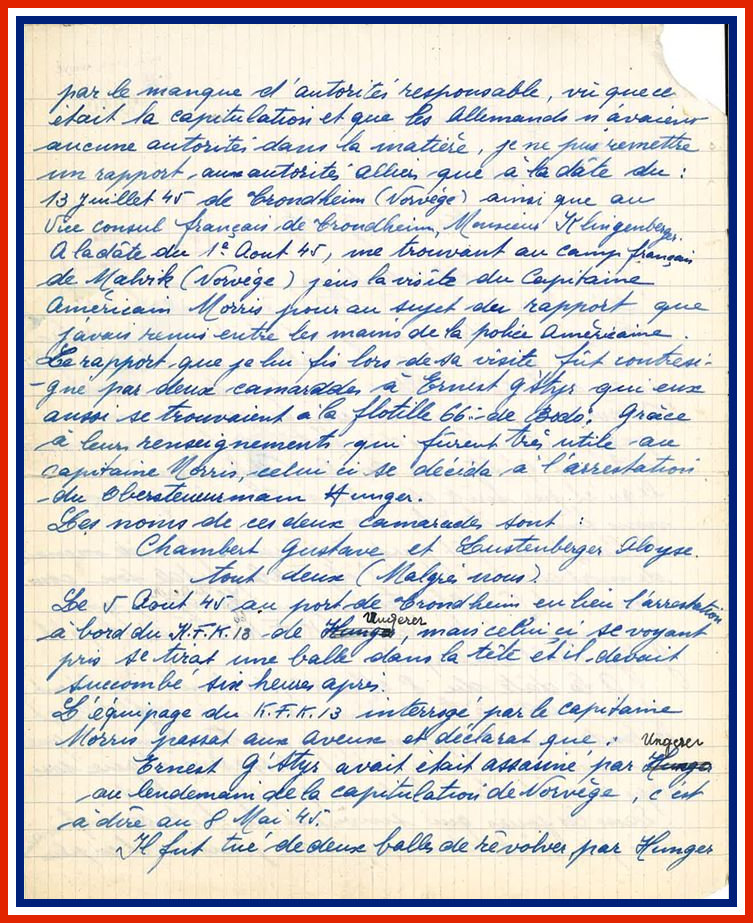 par le manque d'autorités responsable, vu que ce
était la capitulation et que les Allemands n'avaient
aucune autorités dans la matière, je ne puis remettre
un rapport aux autorités alliés que à la dâte du :
13 Juillet 45 de Trondheim (Norvége) ainsi que au
Vice consul français de Trondheim, Monsieur Klingenberger.
A la dâte du 1e Aout 45, me trouvant au camp français
de Malvik (Norvége) j'eus la visite du Capitaine
Américain Morris pour au sujet du rapport que
j'avais remis entre les mains de la police Américaine.
Le rapport que je lui fis lors de sa visite fût contresi-
-gné par deux camarades à Ernest G'Styr qui eux
aussi se trouvaient à la flotille 66 de Bodo. Grâce
à leurs renseignements qui furent très utile au
capitaine Morris, celui ci se décida à l'arrestation
du Obersteuermann Hunger.
Les noms de ces deux camarades sont :
Chambert Gustave et Lustenberger Aloyse.
tout deux (Malgrés nous).
Le 5 Aout 45 au port de Trondheim eu lieu l'arrestation
à bord du K.F.K. 13 de Hunger Ungerer, mais celui ci se voyant
pris se tirat une balle dans la tête et il devait
succombé six heures aprés.
L'équipage du K.F.K. 13 interrogé par le capitaine
Morris passat aux aveux et déclarat que : Ungerer
Ernest G'Styr avait était assasiné par Hunger
au lendemain de la capitulation de Norvége, c'est
à dire au 8 Mai 45.
Il fut tué de deux balles de révolver par Hunger